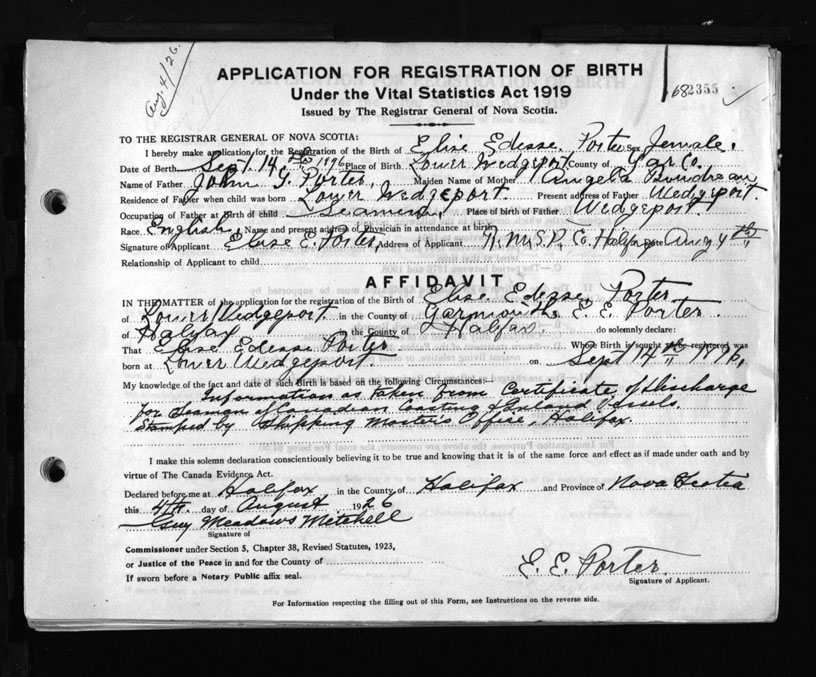 Aug. 4/26.
APPLICATION FOR REGISTRATION OF BIRTH
Under the Vital Statistics Act 1919
Issued by The Registrar General of Nova Scotia.
682355
TO THE REGISTRAR GENERAL OF NOVA SCOTIA:
I hereby make application for the Registration of the Birth of Elise Edesse Porter Sex Female.
Date of Birth Sept. 14th 1896 Place of Birth Lower Wedgeport County of Yar Co.
Name of Father John G. Porter, Maiden Name of Mother Angela
Residence of Father when child was born Lower Wedgeport. Present address of Father Wedgeport.
Occupation of Father at Birth of child Seaman, Place of birth of Father Wedgeport.
Race English, Name and present address of Physician in attendance at birth
Signature of Applicant Elise E. Porter, Address of Applicant R. M. S. P. Co. Halifax Date Aug 4th
Relationship of Applicant to child
AFFIDAVIT
IN THE MATTER of the application for the registration of the Birth of Elise Edesse Porter
of Lower Wedgeport in the County of Yarmouth E. E. Porter
of Halifax in the County of Halifax. do solemnly declare:
That Elise Edesse Porter Whose Birth is sought to be registered was
born at Lower Wedgeport. on Sept 14th 1896,
My knowledge of the fact and date of such Birth is based on the following Circumstances:—
Information as taken from Certificate of Discharge
for Seaman of Canadian Coasting & Inland Vessels.
Stamped by Shipping Master's Office, Halifax.
I make this solemn declaration conscientiously believing it to be true and knowing that it is of the same force and effect as if made under oath and by
virtue of The Canada Evidence Act.
Declared before me at Halifax in the County of Halifax and Province of Nova Scotia
this 4th. day of August 1926
Guy Meadows Mitchell
Signature of
Commissioner under Section 5, Chapter 38, Revised Statutes, 1923,
or Justice of the Peace in and for the County of
If sworn before a Notary Public affix seal.
E. E. Porter.
Signature of Applicant.
For Information respecting the filling out of this Form, see Instructions on the reverse side.